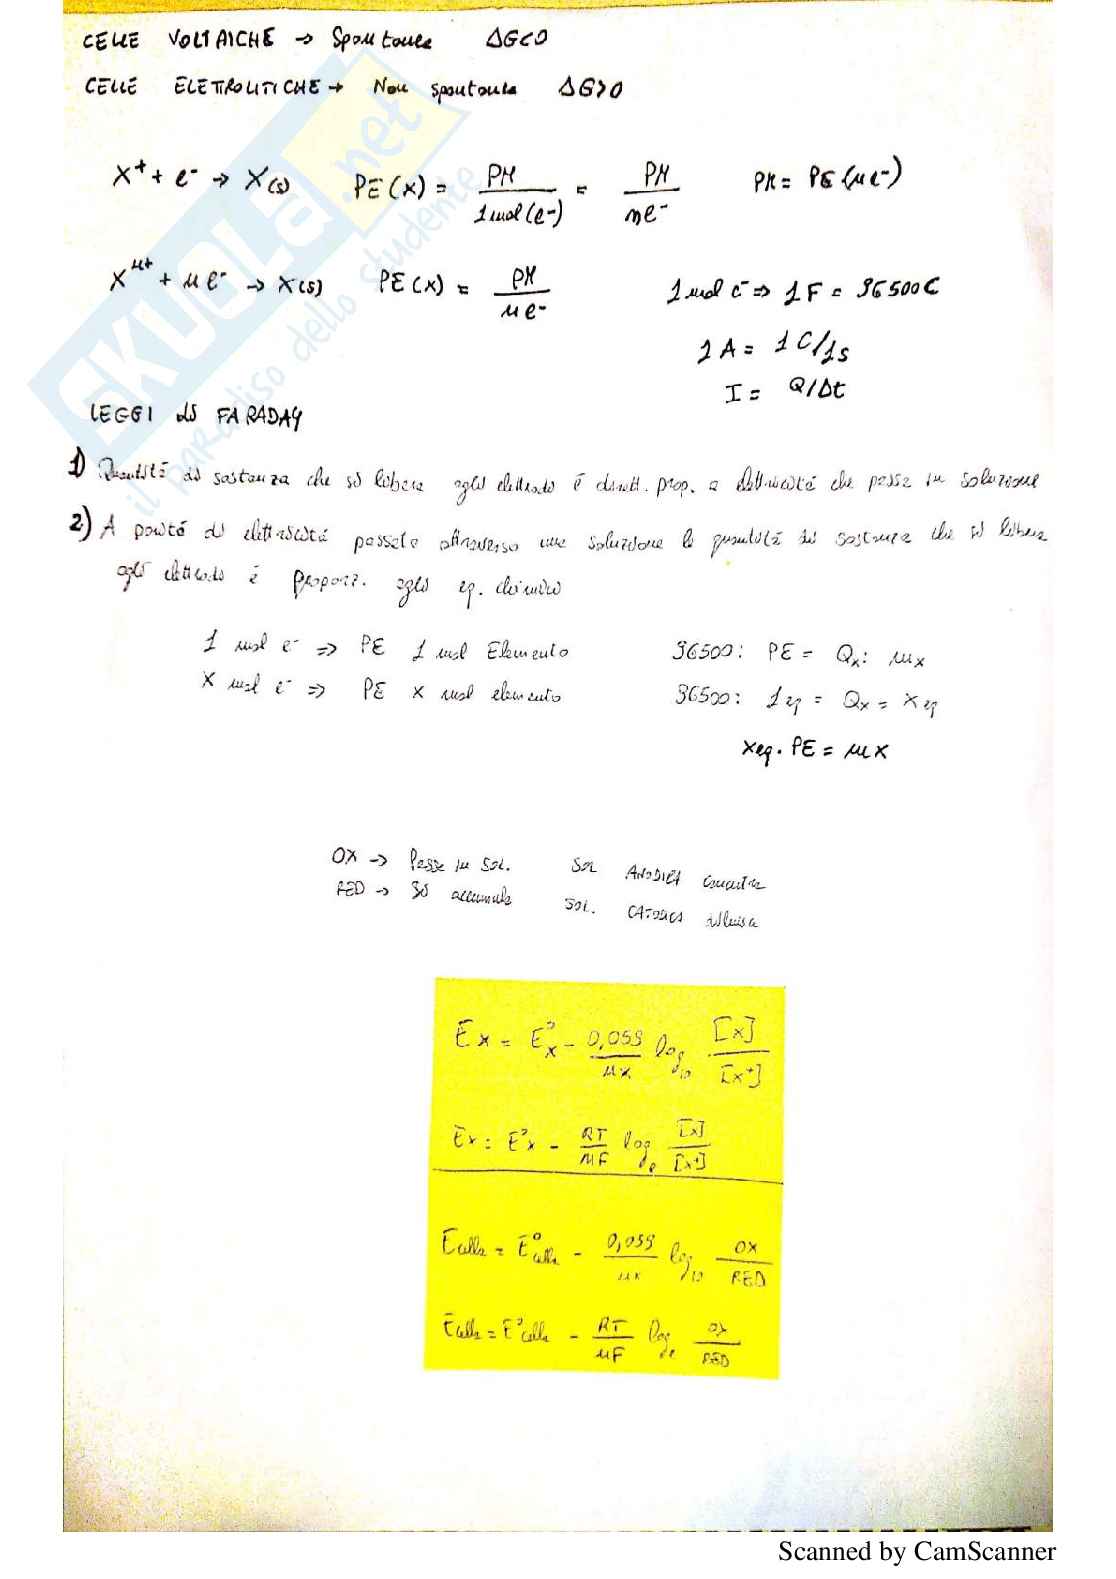 CELLE VOLTAICHE → Spontanee ΔG<0
CELLE ELETTROLITICHE → Non spontanee ΔG>0
X⁺ + e⁻ → X(s) PE(x) = PM / 1 mol(e⁻) = PM / ne⁻ PM = PE·(ne⁻)
Xⁿ⁺ + n e⁻ → X(s) PE(x) = PM / n e⁻ 1 mol e⁻ ⇒ 1 F = 96500 C
1 A = 1 C/1s
I = Q/Δt
LEGGI di FARADAY
1) Quantità di sostanza che si libera agli elettrodi è dirett. prop. a elettricità che passa in soluzione
2) A parità di elettricità passata attraverso una soluzione le quantità di sostanza che si libera
agli elettrodi è proporz. agli eq. chimici
1 mol e⁻ ⇒ PE 1 mol Elemento 96500 : PE = Qx : mx
X mol e⁻ ⇒ PE x mol elemento 96500 : 1 eq = Qx = x eq
xeq. PE = mx
OX → Passa in Sol. Sol ANODICA concentra
RED → Si accumula SOL. CATODICA diluisce
Ex = E°x - 0,059 / nx log₁₀ [x] / [x⁺]
Ex = E°x - RT / nF logₑ [x] / [x⁺]
Ecella = E°cella - 0,059 / nx log₁₀ OX / RED
Ecella = E°cella - RT / nF logₑ OX / RED
SKUOLA.net
il paradiso dello studente
Scanned by CamScanner